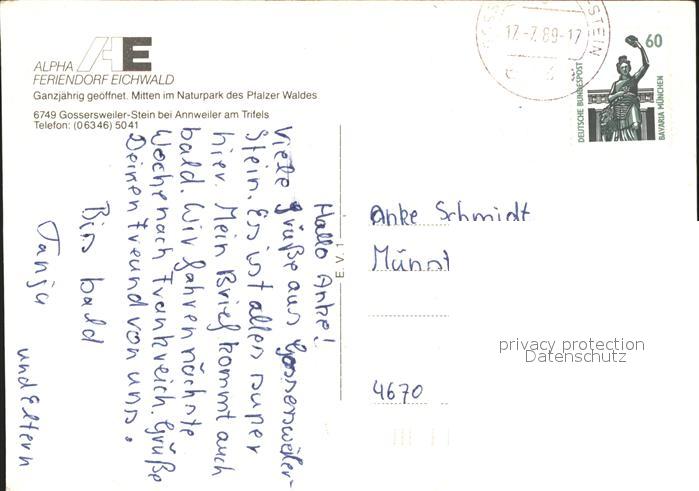 ALPHA
FERIENDORF EICHWALD
Ganzjährig geöffnet. Mitten im Naturpark des Pfalzer Waldes
6749 Gossersweiler-Stein bei Annweiler am Trifels
Telefon: (0 63 46) 50 41
17.-7.89-17
STEIN
60
DEUTSCHE BUNDESPOST
BAVARIA MÜNCHEN
Hallo Anke!
Viele Grüße aus Gossersweiler-
Stein. Es ist alles super
hier. Mein Brief kommt auch
bald. Wir fahren nächste
Woche nach Frankreich. Grüße
Deinen Freund von uns.
Bis bald
Tanja
und Eltern
Anke Schmidt
4670
privacy protection
Datenschutz